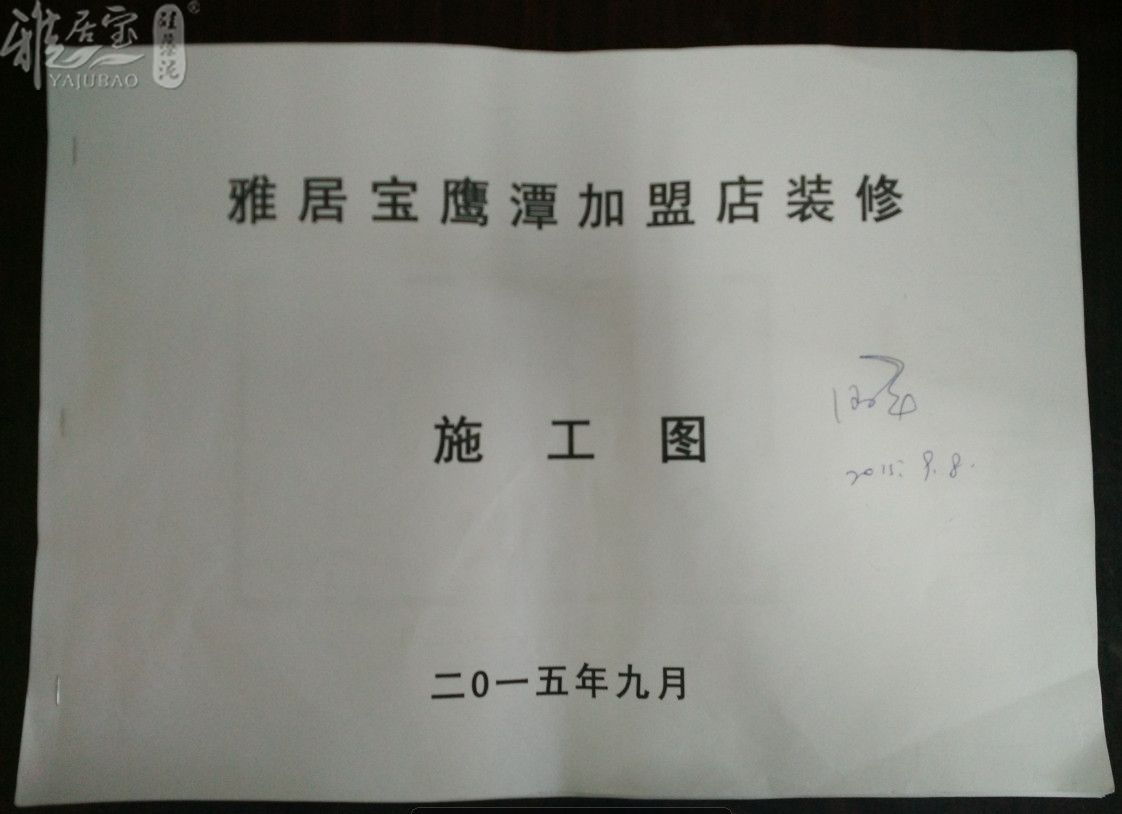 雅居宝 硅藻泥 ®
YAJUBAO
雅居宝鹰潭加盟店装修
施工图
2015.9.8.
二0一五年九月